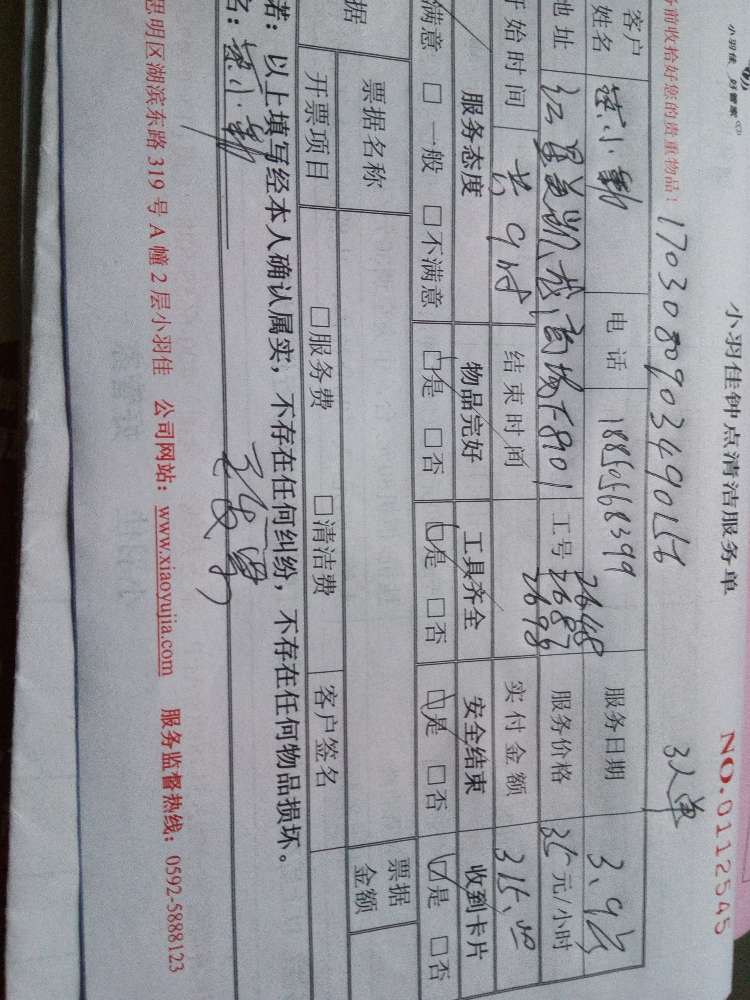 小羽佳 好管家
小羽佳钟点清洁服务单
NO.0112545
前收拾好您的贵重物品!
17030809034901
3人单
客户姓名
电话 18850568399
服务日期 3.9
地址
工号 2648 2687 2698
服务价格 35元/小时
开始时间 9时
结束时间
实付金额 315.00
服务态度 物品完好 工具齐全 安全结束 收到卡片
满意 □一般 □不满意 □是 □否 □是 □否 □是 □否 □是 □否
据
票据名称
票据金额
开票项目 □服务费 □清洁费 客户签名
若:以上填写经本人确认属实,不存在任何纠纷,不存在任何物品损坏。
名:
思明区湖滨东路 319 号 A 幢 2 层小羽佳 公司网站:www.xiaoyujia.com 服务监督热线:0592-5888123